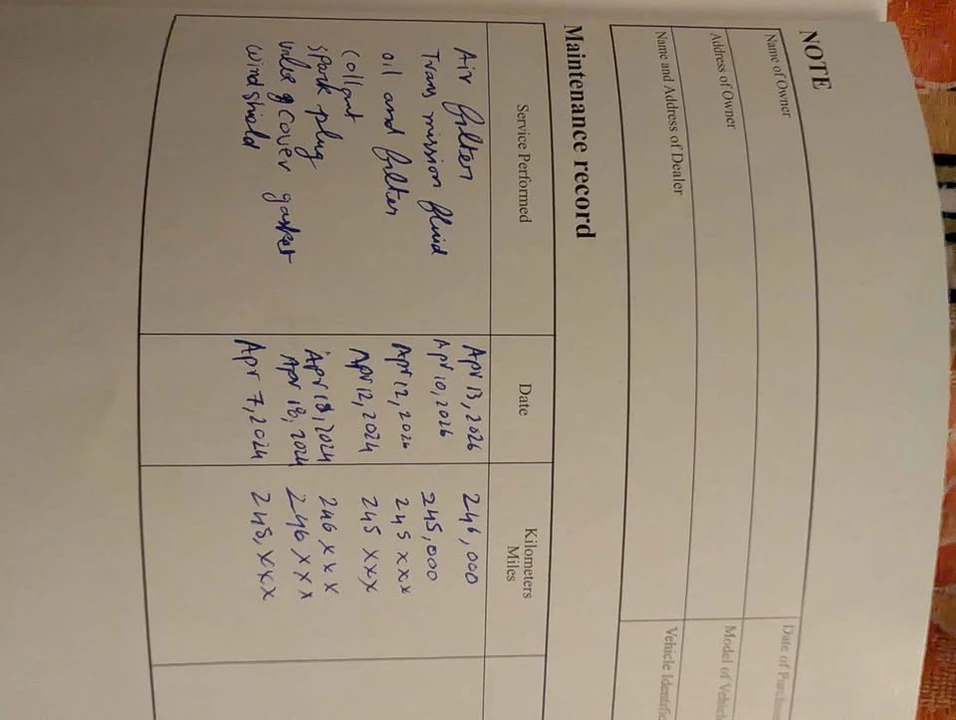 NOTE
Name of Owner
Date of Purchas
Address of Owner
Model of Vehicle
Name and Address of Dealer
Vehicle Identific
Maintenance record
Service Performed Date Kilometers Miles
Air filter Apr 13, 2026 246,000
Transmission fluid Apr 10, 2026 245,000
oil and filter Apr 12, 2026 245 xxx
Apr 12, 2024 245 xxx
spark plug Apr 18, 2024 246 xxx
cover gasket Apr 18, 2024 246 xxx
windshield Apr 7, 2024 245,xxx